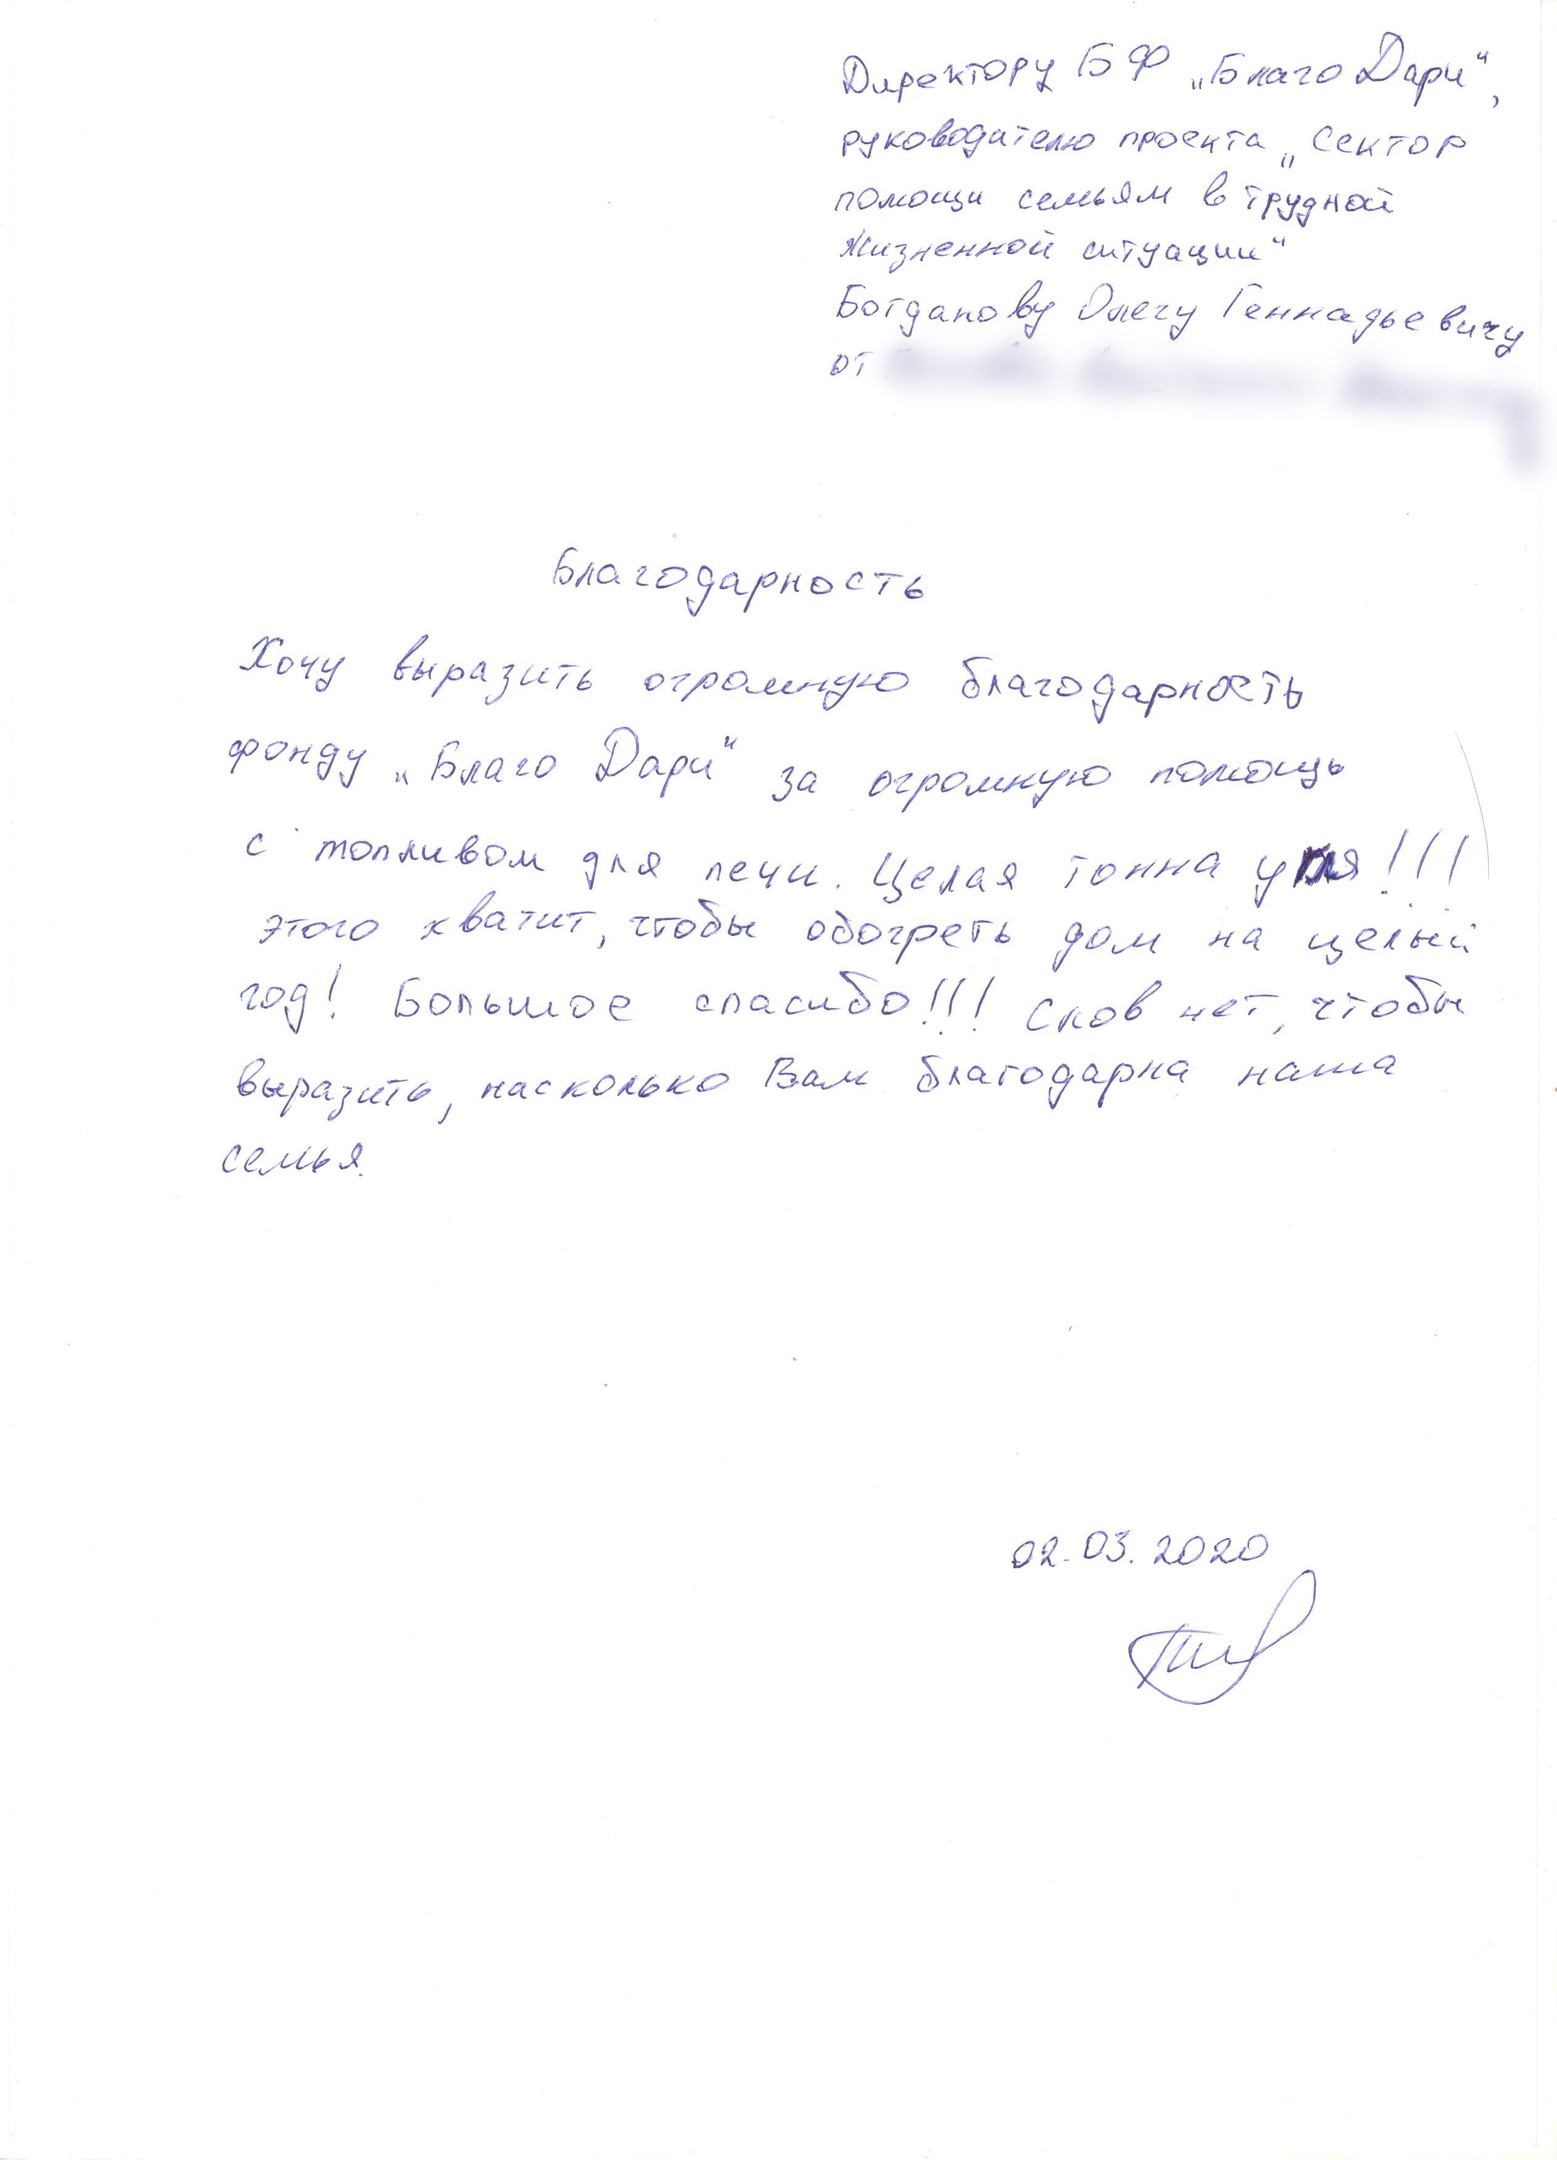 Директору БФ „Благо Дари“,
руководителю проекта „Сектор
помощи семьям в трудной
жизненной ситуации“
Богданову Олегу Геннадьевичу
от
Благодарность
Хочу выразить огромную благодарность
фонду „Благо Дари“ за огромную помощь
с топливом для печи. Целая тонна угля!!!
этого хватит, чтобы обогреть дом на целый
год! Большое спасибо!!! Слов нет, чтобы
выразить, насколько Вам благодарна наша
семья.
02.03.2020